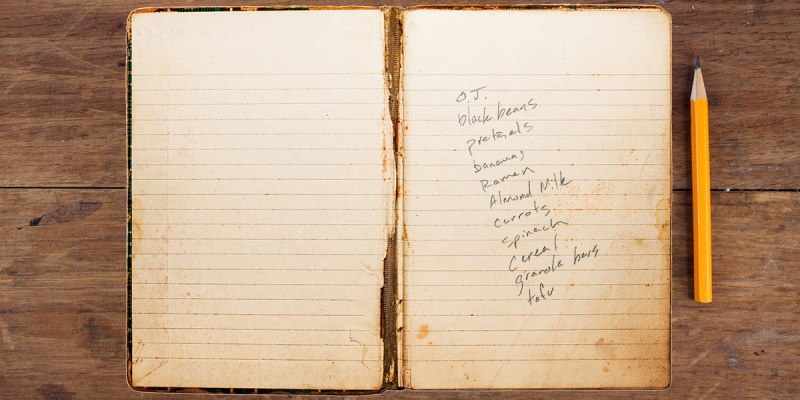 O.J.
black beans
pretzels
bananas
Ramen
Almond Milk
carrots
spinach
Cereal
granola bars
tofu